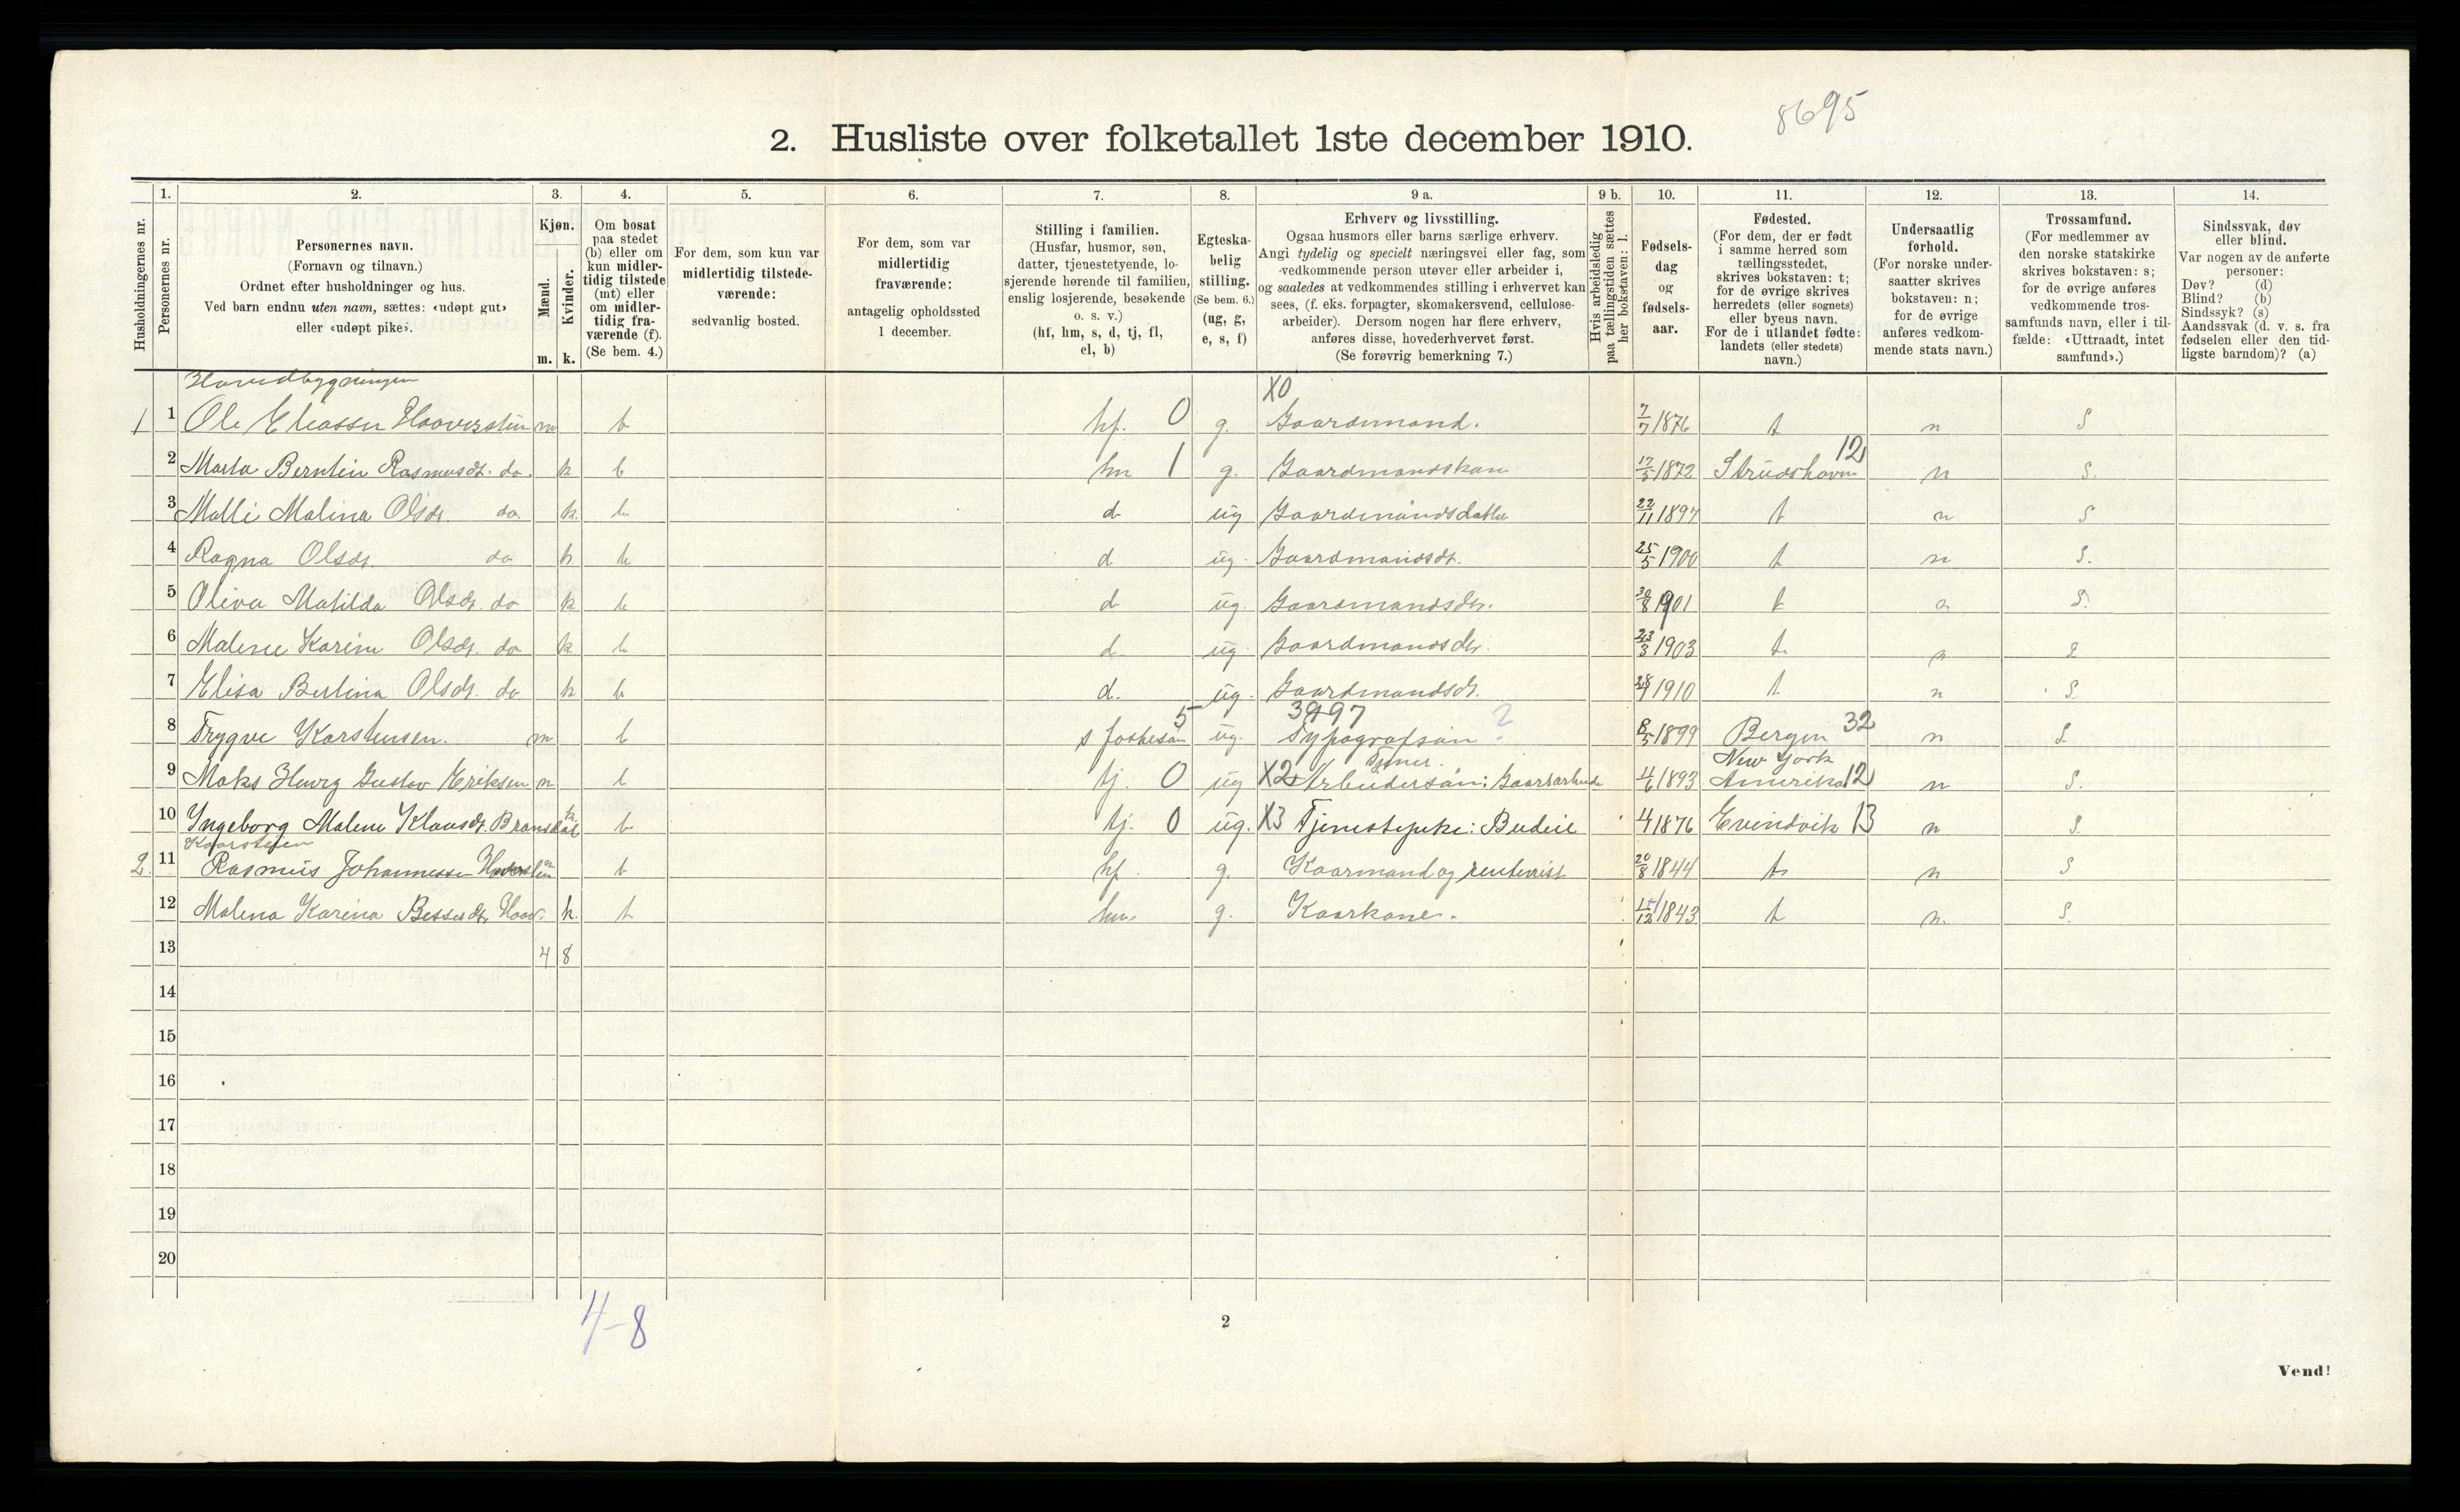 8695
2. Husliste over folketallet 1ste december 1910.
Husholdningernes nr.
1.
Personernes nr.
2.
Personernes navn.
(Fornavn og tilnavn.)
Ordnet efter husholdninger og hus.
Ved barn endnu uten navn, sættes: «udøpt gut»
eller «udøpt pike».
3.
Kjøn.
Mænd.
Kvinder.
m. k.
4.
Om bosat
paa stedet
(b) eller om
kun midler-
tidig tilstede
(mt) eller
om midler-
tidig fra-
værende (f).
(Se bem. 4.)
5.
For dem, som kun var
midlertidig tilstede-
værende:
sedvanlig bosted.
6.
For dem, som var
midlertidig
fraværende:
antagelig opholdssted
1 december.
7.
Stilling i familien.
(Husfar, husmor, søn,
datter, tjenestetyende, lo-
sjerende hørende til familien,
enslig losjerende, besøkende
o. s. v.)
(hf, hm, s, d, tj, fl,
el, b)
8.
Egteska-
belig
stilling.
(Se bem. 6.)
(ug, g,
e, s, f)
9 a.
Erhverv og livsstilling.
Ogsaa husmors eller barns særlige erhverv.
Angi tydelig og specielt næringsvei eller fag, som
vedkommende person utøver eller arbeider i,
og saaledes at vedkommendes stilling i erhvervet kan
sees, (f. eks. forpagter, skomakersvend, cellulose-
arbeider). Dersom nogen har flere erhverv,
anføres disse, hovederhvervet først.
(Se forøvrig bemerkning 7.)
9 b.
Hvis arbeidsledig
paa tællingstiden sættes
her bokstaven: l.
10.
Fødsels-
dag
og
fødsels-
aar.
11.
Fødested.
(For dem, der er født
i samme herred som
tællingsstedet,
skrives bokstaven: t;
for de øvrige skrives
herredets (eller sognets)
eller byens navn.
For de i utlandet fødte:
landets (eller stedets)
navn.)
12.
Undersaatlig
forhold.
(For norske under-
saatter skrives
bokstaven: n;
for de øvrige
anføres vedkom-
mende stats navn.)
13.
Trossamfund.
(For medlemmer av
den norske statskirke
skrives bokstaven: s;
for de øvrige anføres
vedkommende tros-
samfunds navn, eller i til-
fælde: «Uttraadt, intet
samfund».)
14.
Sindssvak, døv
eller blind.
Var nogen av de anførte
personer:
Døv? (d)
Blind? (b)
Sindssyk? (s)
Aandssvak (d. v. s. fra
fødselen eller den tid-
ligste barndom)? (a)
Hovedbygningen X0
1 1 Ole m b hf. 0 g. Gaardmand. 7/7 1876 t n S
2 Marta Berntin Rasmusdt. do. k b hm 1 g. Gaardmandskone 17/5 1872 12 n S.
3 Malli Malina Olsdt. do. k. b d ug Gaardmandsdatter 22/11 1897 t n S
4 Ragna Olsdt. do k b d ug. Gaardmandsdt. 25/5 1900 t n S.
5 Oliva Matilda Olsdt. do k b d ug. Gaardmandsdtr. 1901 t n S.
6 Malene Karine Olsdt. do k b d ug. Gaardmandsdtr. 23/3 1903 t n S
7 Elisa Bertina Olsdt. do k b d. ug. Gaardmandsdt. 1910 t n S
5 3997 ?
8 Trygve Karstensen. m b s fostersøn ug. Typografsøn 8/5 1899 Bergen 32 n S
New York
9 Maks Henry Gustav Eriksen m b tj. 0 ug X2 Arbeidersøn: Gaardarbeide 4/6 1893 Amerika 12 n S.
10 Ingeborg Malene Klausdt. k. b tj. 0 ug. X3 Tjenestepike: Budeie 1876 Evindvik 13 n S.
2. 11 Rasmus Johannessen m b hf. g. Kaarmand og rentenist 20/8 1844 t n S
12 Malena Karina k. b hm. g. Kaarkone. 1843 t n. S.
13 4 8
14
15
16
17
18
19
20
4-8
2
Vend!